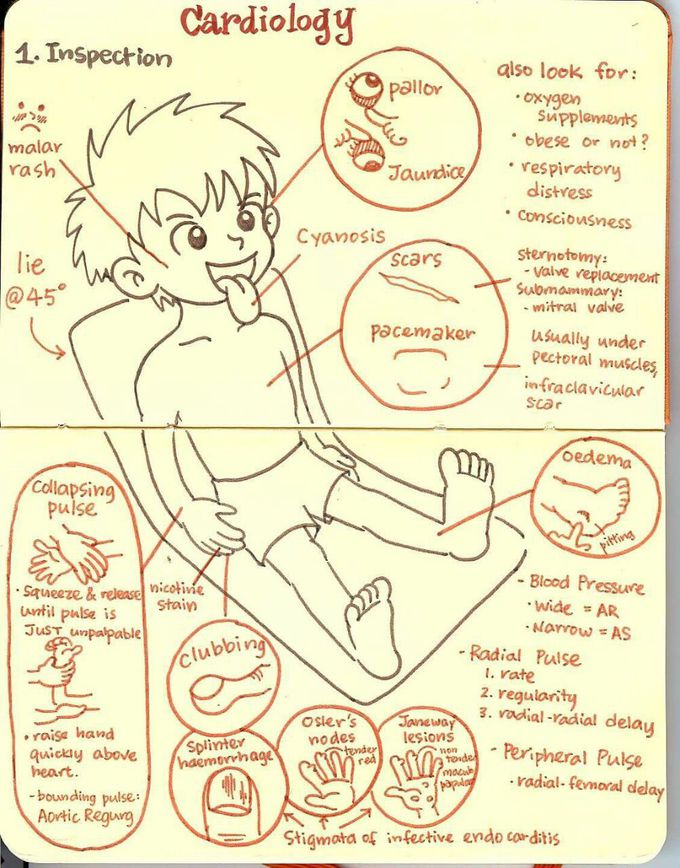 Cardiology
1. Inspection
malar
rash
lie
@45°
pallor
Jaundice
Cyanosis
also look for:
• oxygen
supplements
• obese or not?
• respiratory
distress
• consciousness
scars
pacemaker
sternotomy:
- valve replacement
submammary:
- mitral valve
usually under
pectoral muscles,
infraclavicular
scar
Collapsing
pulse
• Squeeze & release
until pulse is
JUST unpalpable
• raise hand
quickly above
heart.
- bounding pulse:
Aortic Regurg
nicotine
stain
clubbing
Splinter
haemorrhage
Osler's
nodes
tender
red
Janeway
lesions
non
tender
macular
papular
Stigmata of infective endocarditis
oedema
pitting
- Blood Pressure
• Wide = AR
• Narrow = AS
- Radial Pulse
1. rate
2. regularity
3. radial-radial delay
- Peripheral Pulse
• radial-femoral delay